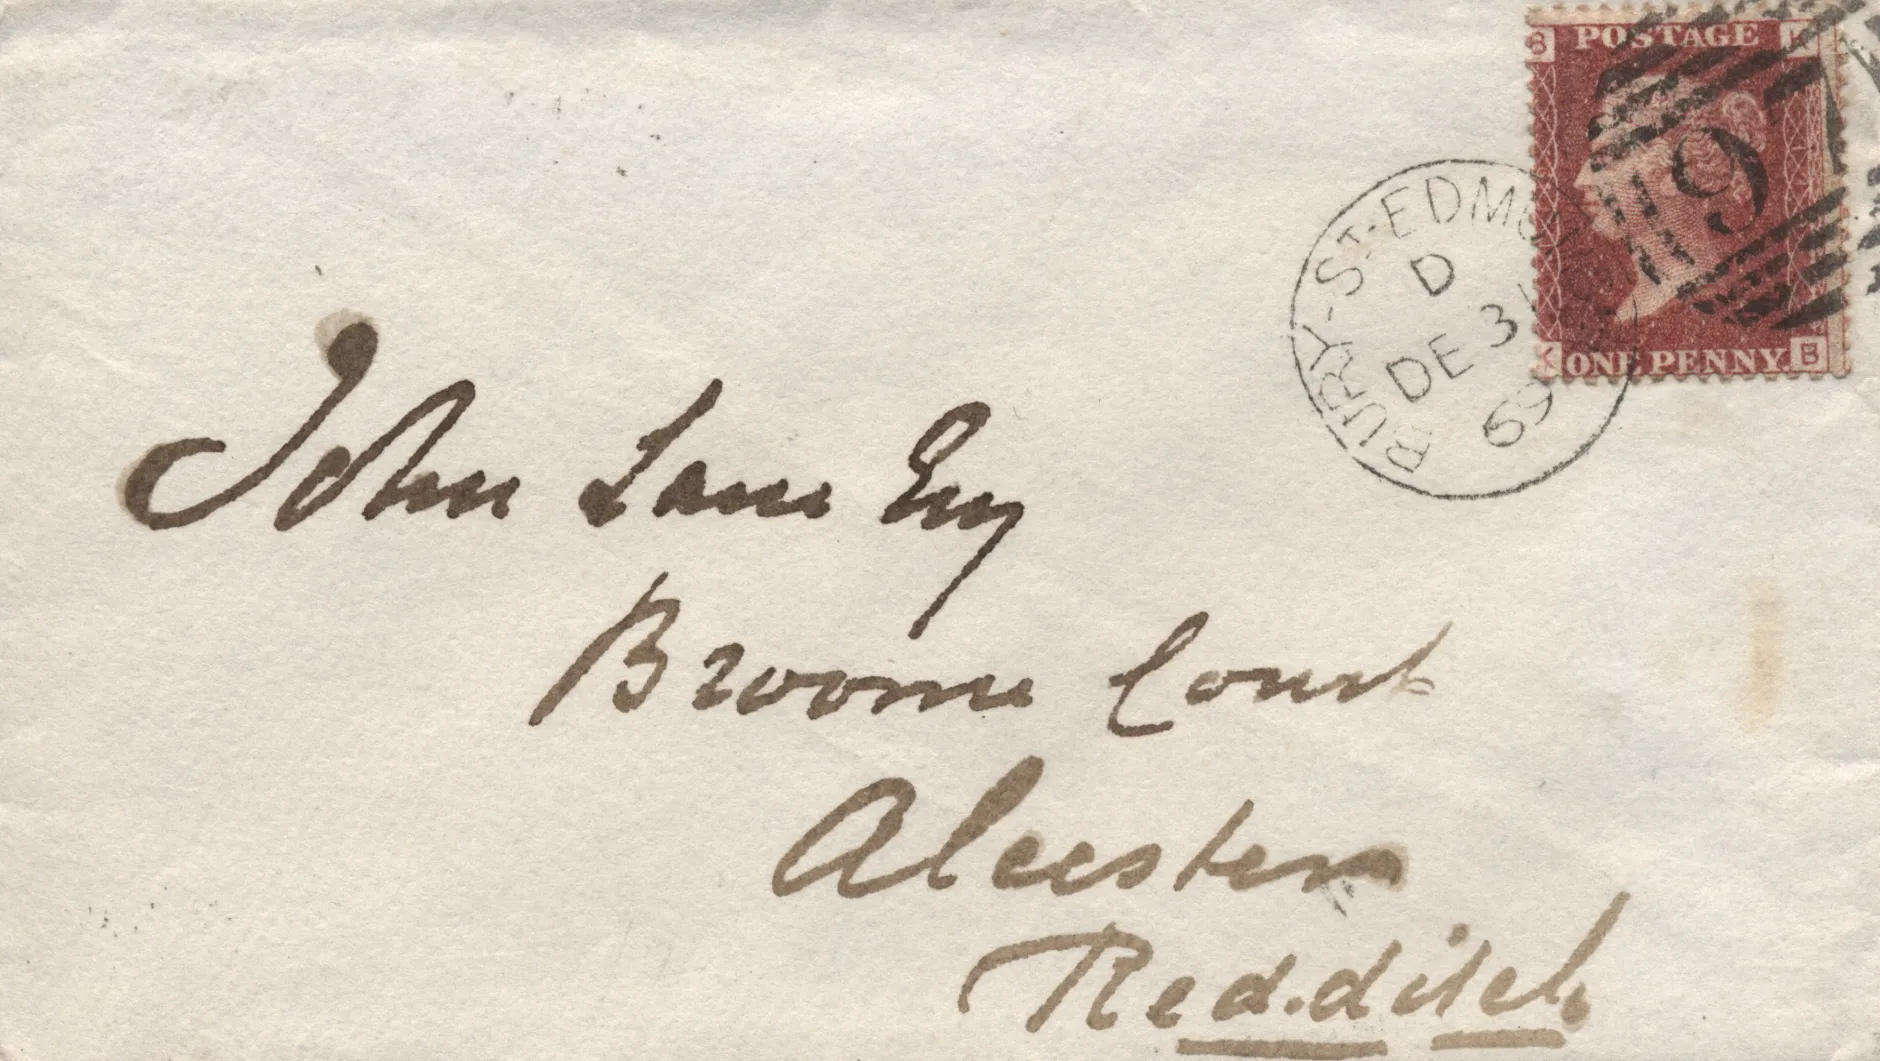 B POSTAGE K
9
K ONE PENNY. B
BURY-ST-EDMU
D
DE 31
69
John Lane Esq
Broome Court
Alcester
Redditch